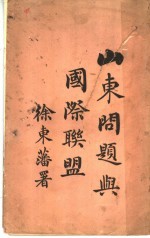 山東問題與
國際聯盟
徐東藩署